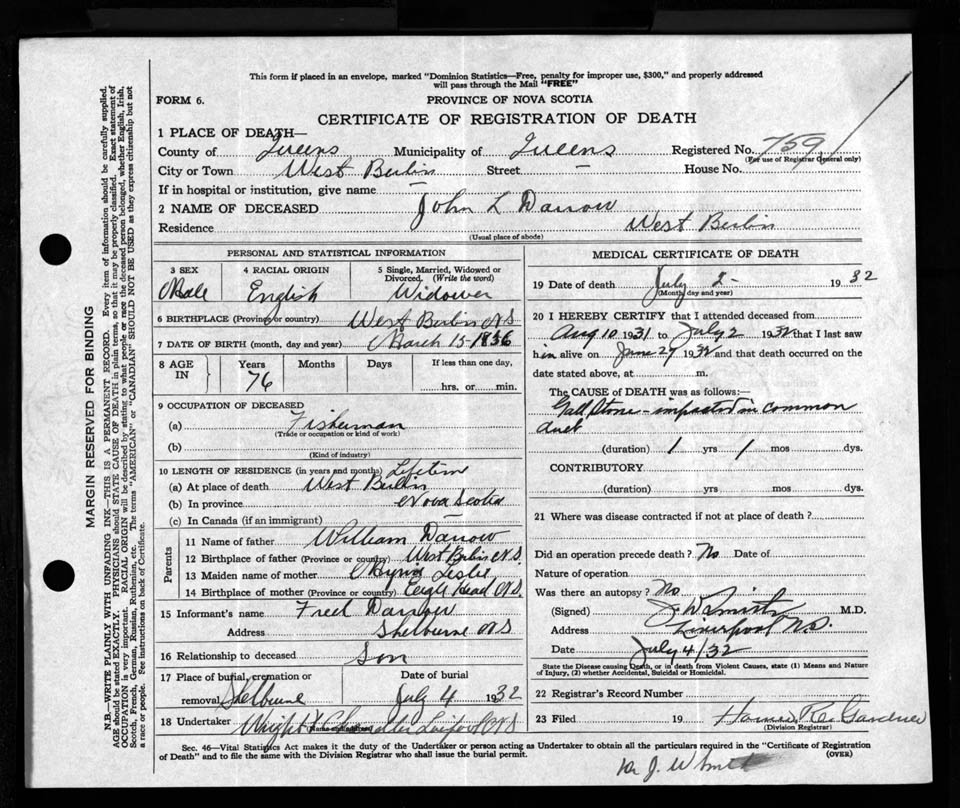 This form if placed in an envelope, marked "Dominion Statistics—Free, penalty for improper use, $300," and properly addressed
will pass through the Mail "FREE"
FORM 6.
PROVINCE OF NOVA SCOTIA
CERTIFICATE OF REGISTRATION OF DEATH
1 PLACE OF DEATH—
County of Queens Municipality of Queens Registered No. 759
(For use of Registrar General only)
City or Town West Berlin Street — House No.
If in hospital or institution, give name —
2 NAME OF DECEASED John L Darrow
Residence West Berlin
(Usual place of abode)
PERSONAL AND STATISTICAL INFORMATION
3 SEX 4 RACIAL ORIGIN 5 Single, Married, Widowed or Divorced. (Write the word)
Male English Widower
6 BIRTHPLACE (Province or country) West Berlin N.S
7 DATE OF BIRTH (month, day and year) March 15-1856
8 AGE IN Years Months Days If less than one day,
76 hrs. or min.
9 OCCUPATION OF DECEASED
(a) Fisherman
(Trade or occupation or kind of work)
(b)
(Kind of industry)
10 LENGTH OF RESIDENCE (in years and months) Lifetime
(a) At place of death West Berlin
(b) In province Nova Scotia
(c) In Canada (if an immigrant)
Parents
11 Name of father William Darrow
12 Birthplace of father (Province or country) West Berlin N.S.
13 Maiden name of mother Leslie
14 Birthplace of mother (Province or country) Head N.S.
15 Informant's name Fred Darrow
Address Shelburne N S
16 Relationship to deceased Son
17 Place of burial, cremation or removal Shelburne Date of burial July 4 1932
18 Undertaker Wright N S
MEDICAL CERTIFICATE OF DEATH
19 Date of death July 2- 1932
(Month, day and year)
20 I HEREBY CERTIFY that I attended deceased from
Aug 10 1931 to July 2 1932 that I last saw
him alive on June 27 1932 and that death occurred on the
date stated above, at m.
The CAUSE OF DEATH was as follows:—
Gall Stone - impacted in common
duct
(duration) 1 yrs 1 mos dys.
CONTRIBUTORY
(duration) yrs mos dys.
21 Where was disease contracted if not at place of death?
Did an operation precede death? No Date of
Nature of operation
Was there an autopsy? No
(Signed) J W Smith M.D.
Address Liverpool N.S.
Date July 4/32
State the Disease causing Death, or in death from Violent Causes, state (1) Means and Nature
of Injury, (2) whether Accidental, Suicidal or Homicidal.
22 Registrar's Record Number
23 Filed 19 Gardner
(Division Registrar)
Sec. 46—Vital Statistics Act makes it the duty of the Undertaker or person acting as Undertaker to obtain all the particulars required in the "Certificate of Registration
of Death" and to file the same with the Division Registrar who shall issue the burial permit. (OVER)
Dr J. W Smith
MARGIN RESERVED FOR BINDING
N.B.—WRITE PLAINLY WITH UNFADING INK—THIS IS A PERMANENT RECORD. Every item of information should be carefully supplied.
AGE should be stated EXACTLY. PHYSICIANS should STATE CAUSE OF DEATH in plain terms, so that it may be properly classified. Exact statement of
OCCUPATION is very important. RACIAL ORIGIN will be described by stating to what people or race the deceased person belonged, whether English, Irish,
Scotch, French, German, Russian, Ruthenian, etc. The terms "AMERICAN" or "CANADIAN" SHOULD NOT BE USED as they express citizenship but not
a race or people. See instructions on back of Certificate.